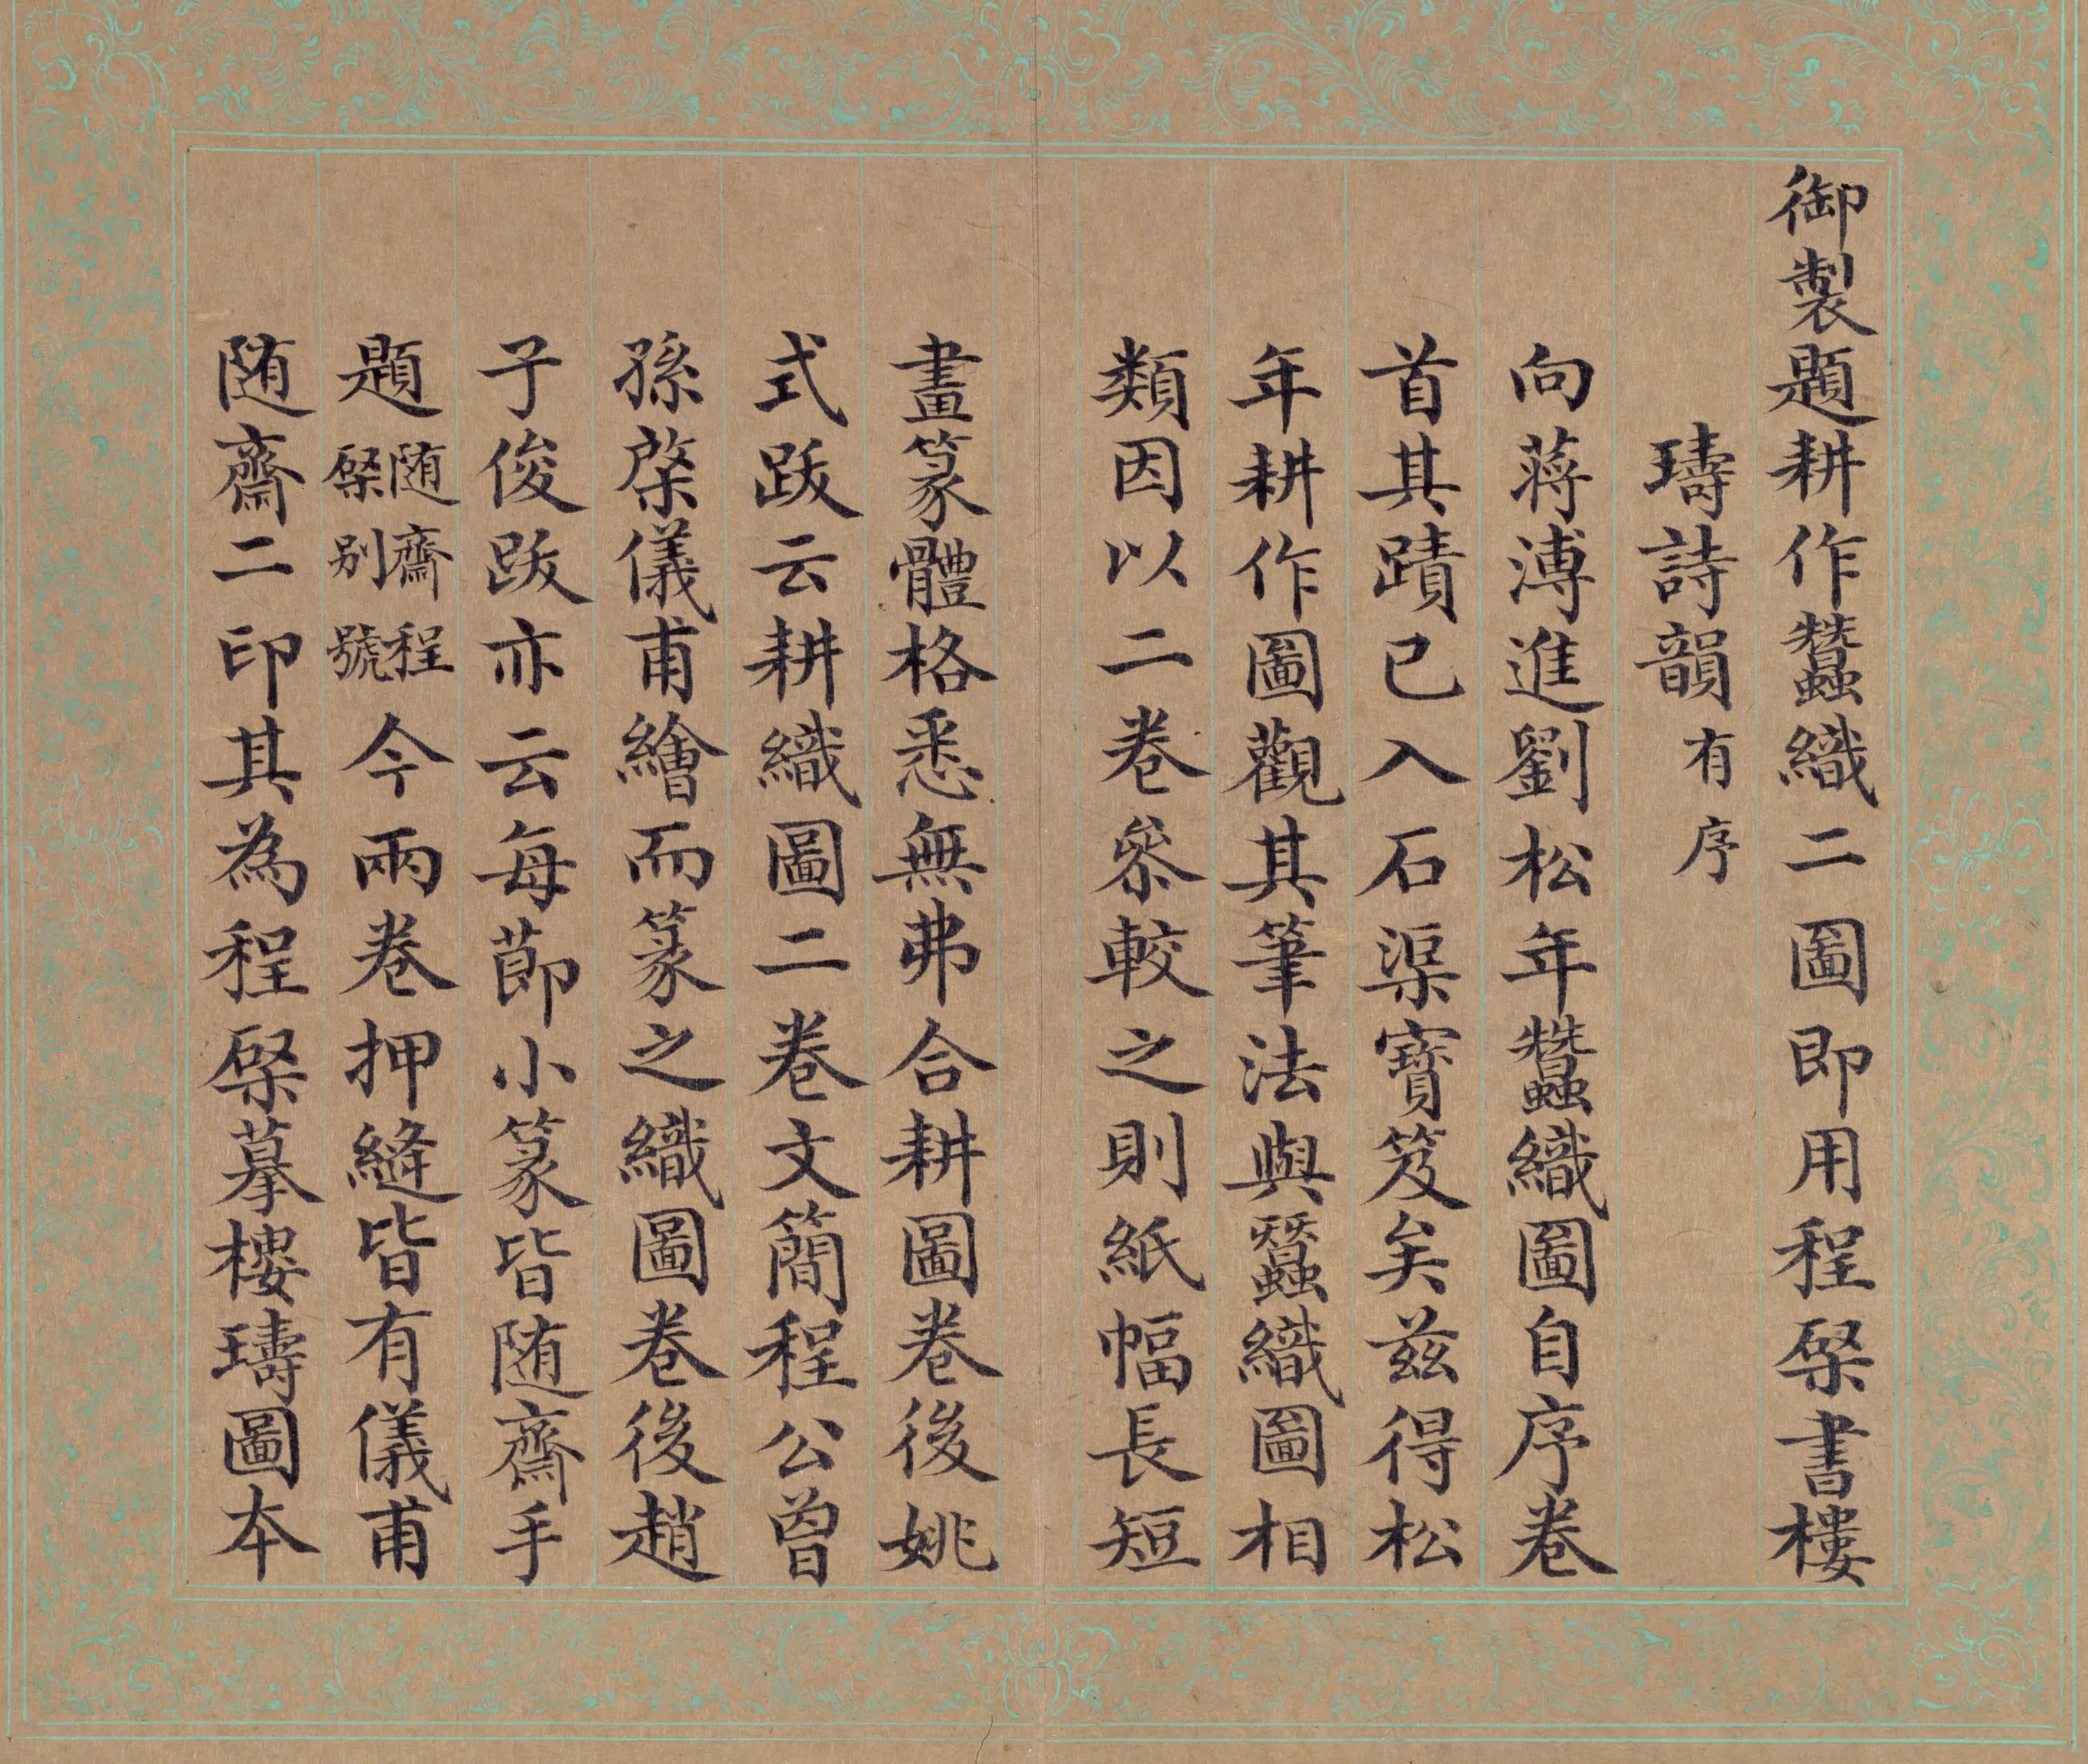 御製題耕作蠶織二圖即用程棨書樓
璹詩韻有序
向蔣溥進劉松年蠶織圖自序卷
首其蹟已入石渠寶笈矣茲得松
年耕作圖觀其筆法與蠶織圖相
類因以二卷叅較之則紙幅長短
畫篆體格悉無弗合耕圖卷後姚
式跋云耕織圖二卷文簡程公曾
孫棨儀甫繪而篆之織圖卷後趙
子俊跋亦云每莭小篆皆随齋手
題随齋程棨别號今兩卷押縫皆有儀甫
随齋二印其為程棨摹樓璹圖本